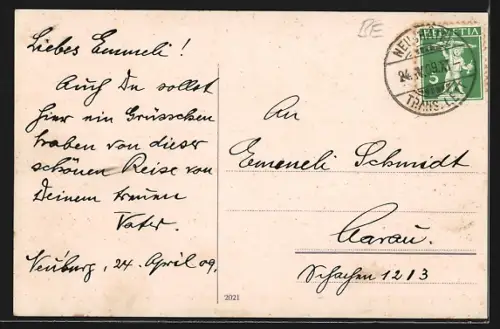 Liebes Emmeli!
Auch Du sollst
hier ein Grüsschen
haben von dieser
schönen Reise von
Deinem treuen
Vater.
Neuburg, 24 April 09.
BE
HELVETIA
5
TRANS. LET
An
Emmeli Schmidt
Aarau.
Schachen 1213
2021